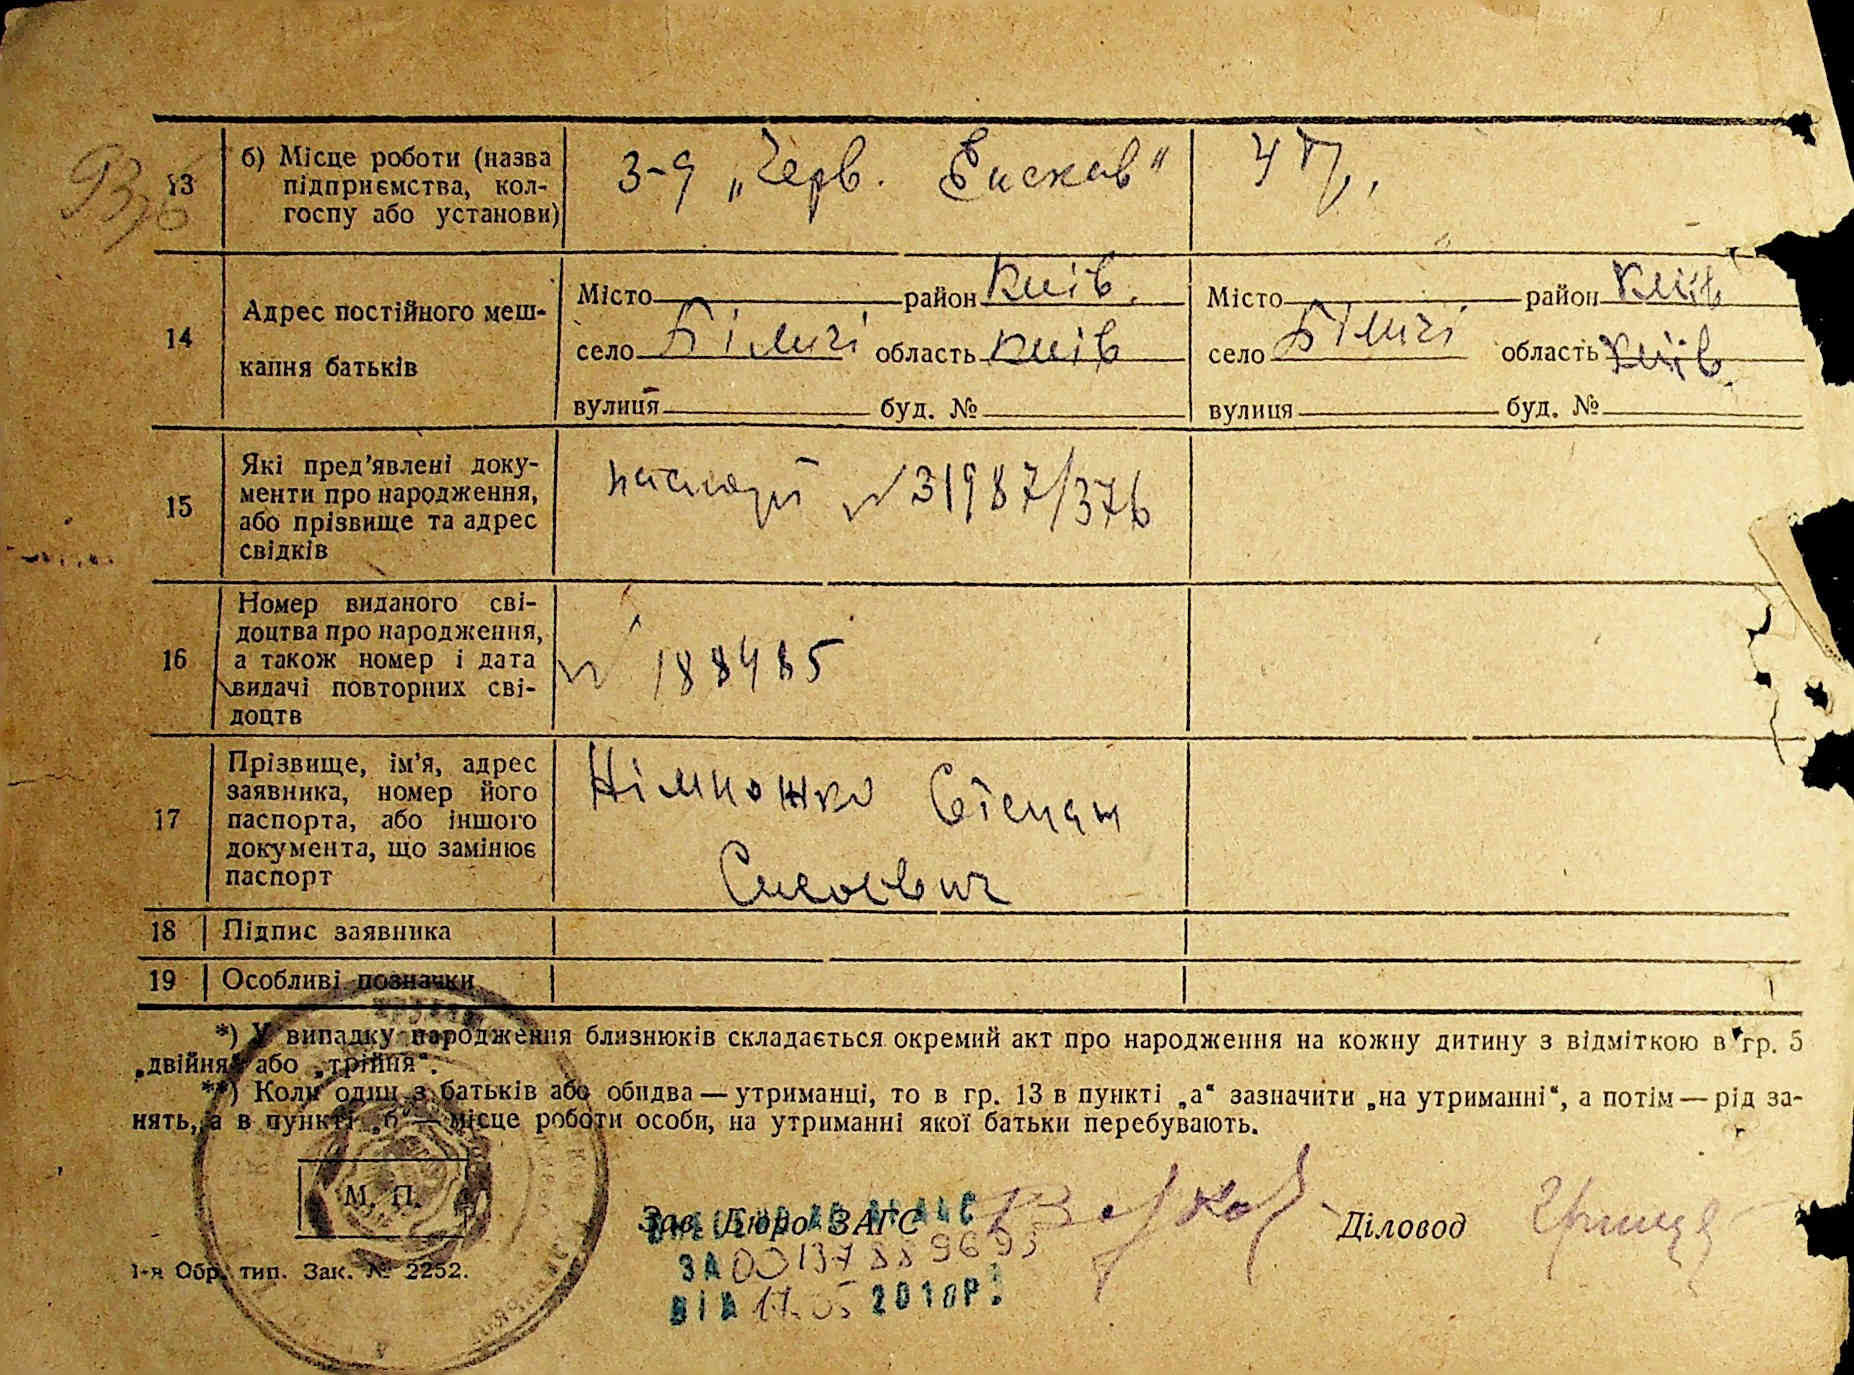 13 б) Місце роботи (назва
підприємства, кол-
госпу або установи)
З-д „Черв.
14 Адрес постійного меш-
кання батьків
Місто район Київ. Місто район Київ
село Біличі область Київ село Біличі область Київ
вулиця буд. № вулиця буд. №
15 Які пред'явлені доку-
менти про народження,
або прізвище та адрес
свідків
паспорт № 31987/376
16 Номер виданого сві-
доцтва про народження,
а також номер і дата
видачі повторних сві-
доцтв
№ 188485
17 Прізвище, ім'я, адрес
заявника, номер його
паспорта, або іншого
документа, що замінює
паспорт
Німножко Степан
18 Підпис заявника
19 Особливі позначки
*) У випадку народження близнюків складається окремий акт про народження на кожну дитину з відміткою в гр. 5
„двійня“ або „трійня“.
**) Коли один з батьків або обидва — утриманці, то в гр. 13 в пункті „а“ зазначити „на утриманні“, а потім — рід за-
нять, а в пункті „б“ — місце роботи особи, на утриманні якої батьки перебувають.
М. П.
Зав. Бюро ЗАГС Діловод
ЗА 00137889693
ВІД 17.05 2018Р.
1-я Обр. тип. Зак. № 2252.